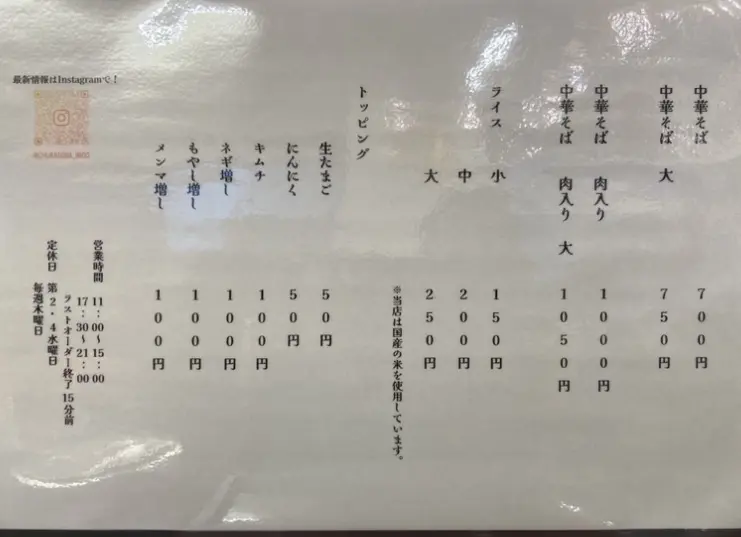 中華そば 700円
中華そば 大 750円
中華そば 肉入り 1000円
中華そば 肉入り 大 1050円
ライス 小 150円
中 200円
大 250円
※当店は国産の米を使用しています。
トッピング
生たまご 50円
にんにく 50円
キムチ 100円
ネギ増し 100円
もやし増し 100円
メンマ増し 100円
営業時間 11:00〜15:00
17:30〜21:00
ラストオーダー終了15分前
定休日 第2・4水曜日
毎週木曜日
最新情報はInstagramで!